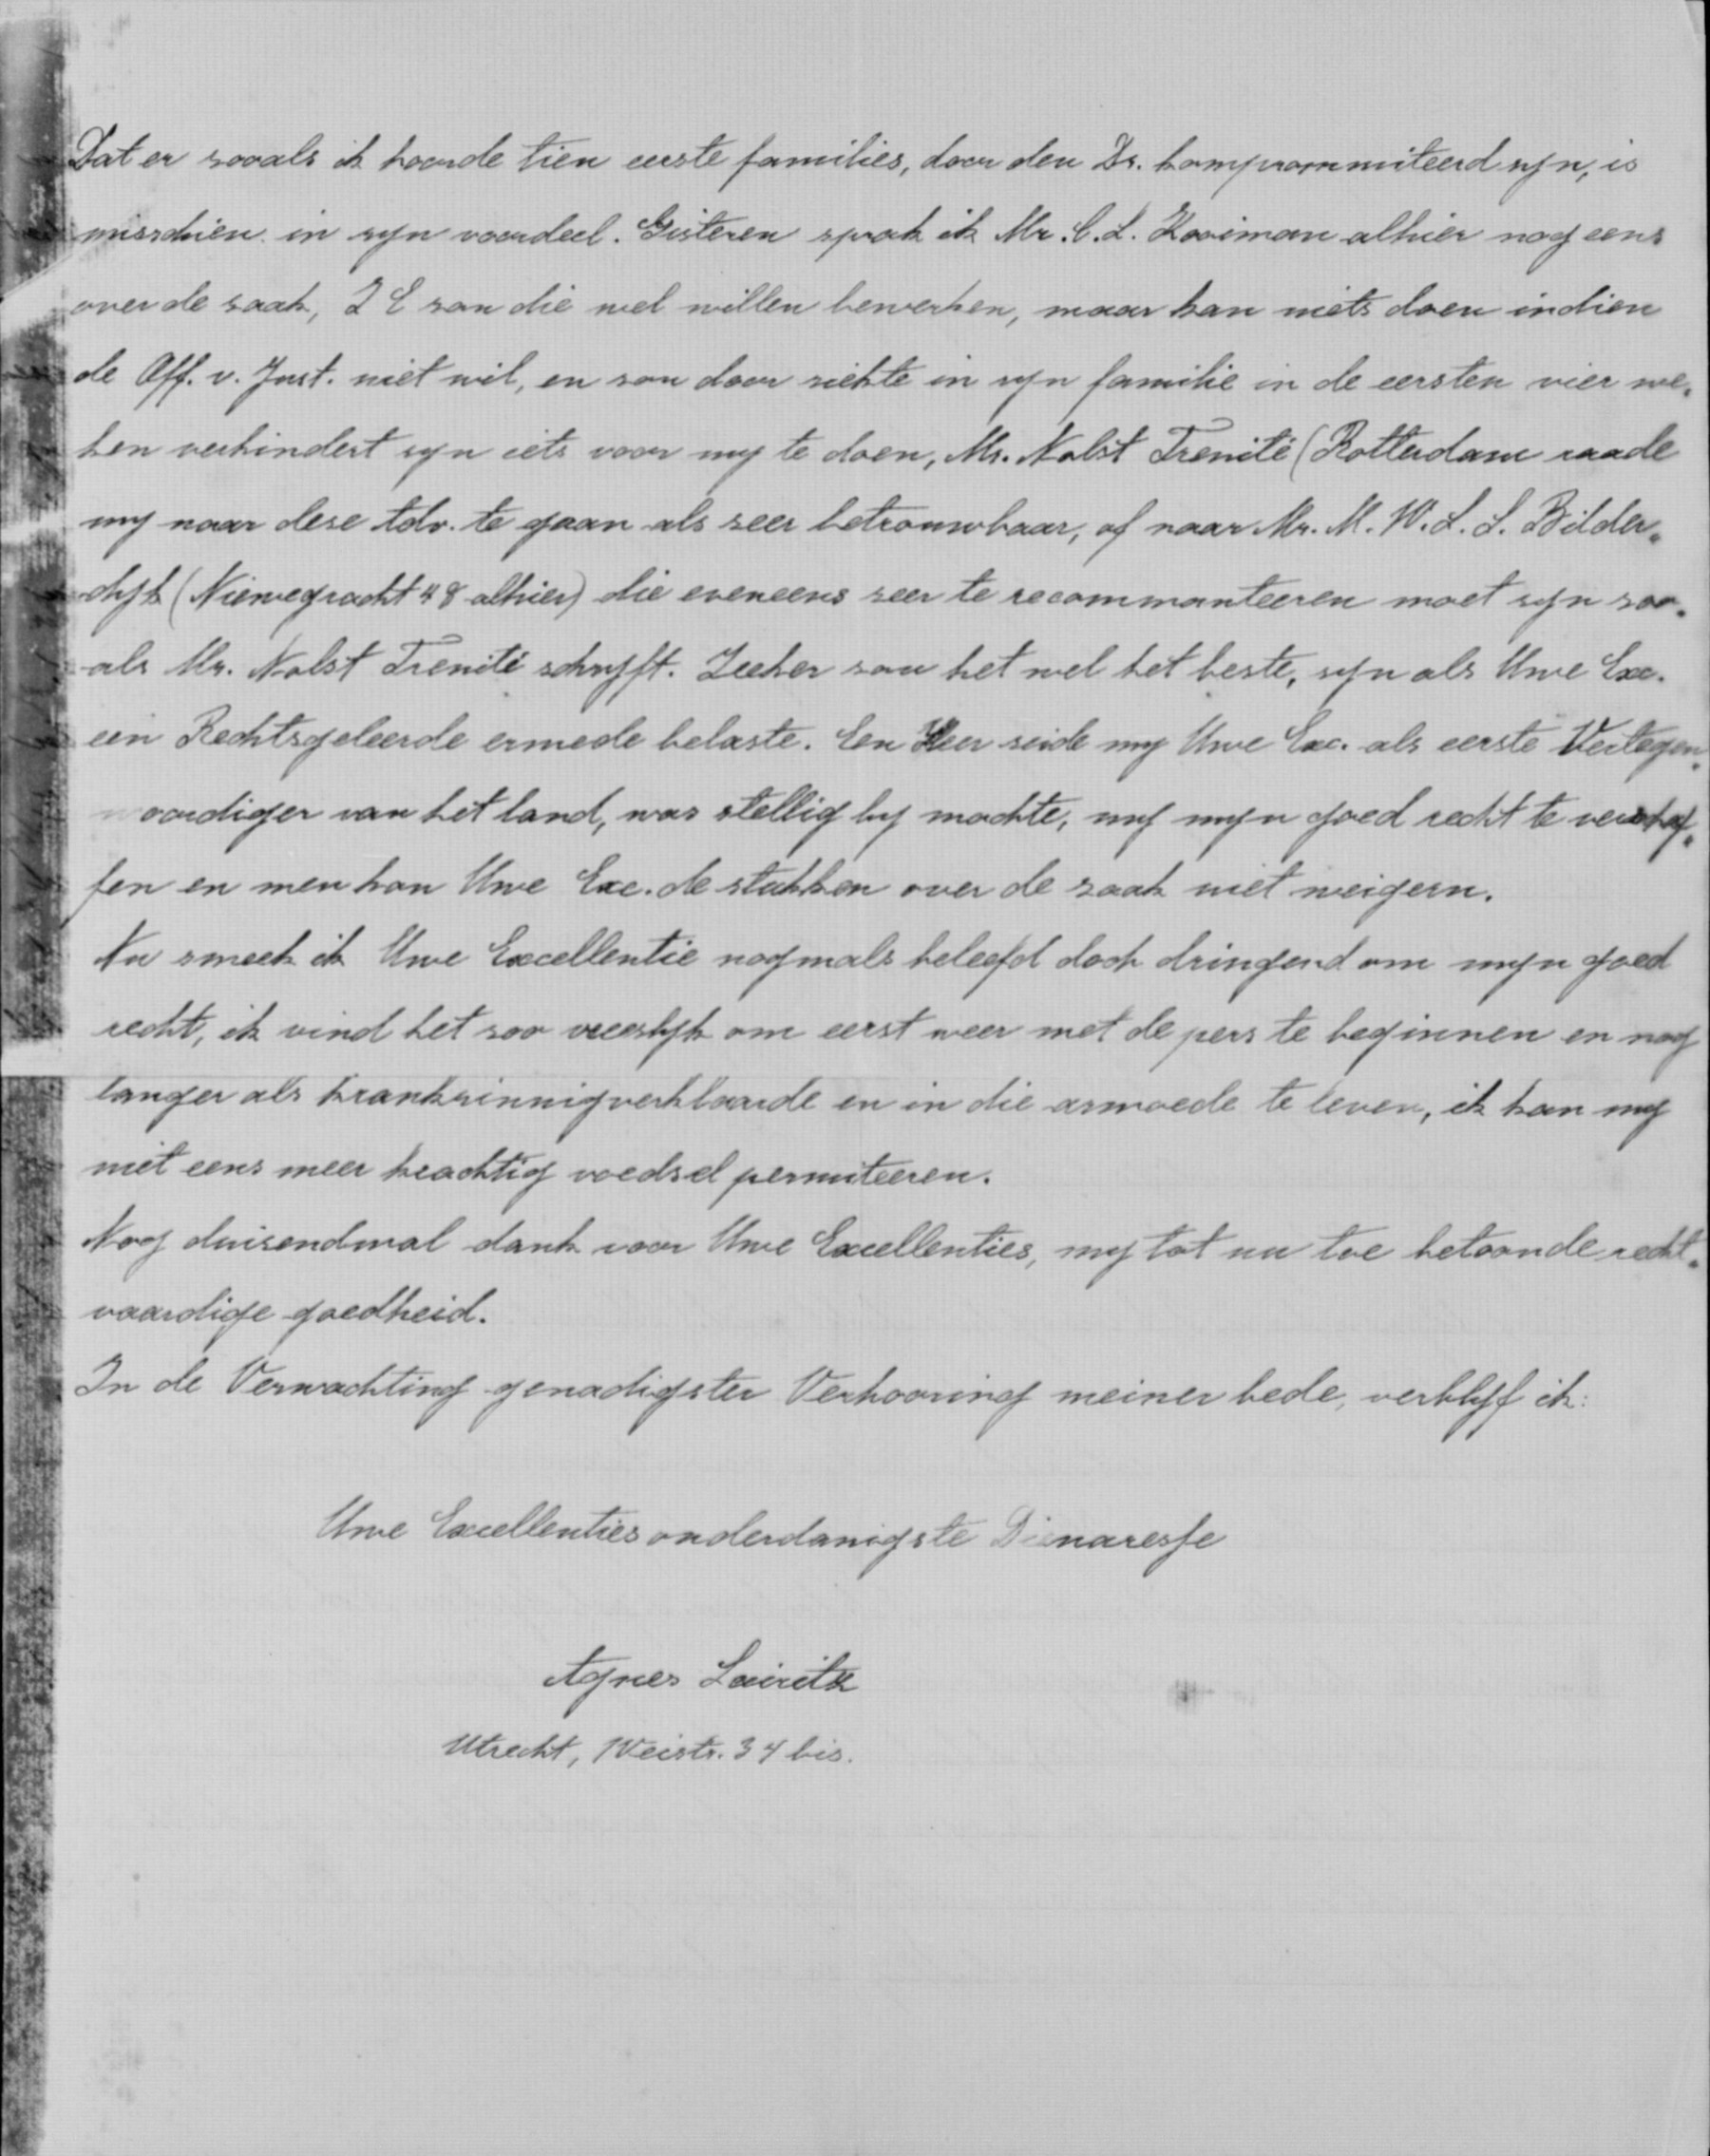 Dat er sooals ik hoorde tien eerste families, door den Dr. komprommiteerd syn, is
misschien in syn voordeel. Gisteren sprak ik Mr. C. L. Kooiman alhier nog eens
over de saak, Z E sou die wel willen bewerken, maar kan niets doen indien
de Off. v. Just. niet wil, en sou door siekte in syn familie in de eersten vier we„
ken verhindert syn iets voor my te doen, Mr. Nolst Trenité (Rotterdam raade
my naar dese adv. te gaan als seer betrouwbaar, of naar Mr. M. W. L. S. Bilder„
dyk (Niewegracht 48 alhier) die eveneens seer te recommanteeren moet syn soo„
als Mr. Nolst Trenité schryft. Zeeker sou het wel het beste, syn als Uwe Exc.
een Rechtsgeleerde ermede belaste. Een Heer seide my Uwe Exc. als eerste Vertegen„
woordiger van het land, was stellig by machte, my myn goed recht te verschaf„
fen en men kan Uwe Exc. de stukken over de saak niet weigern.
Nu smeek ik Uwe Excellentie nogmals beleefd doch dringend om myn goed
recht, ik vind het soo vreeslyk om eerst weer met de pers te beginnen en nog
langer als kranksinnigverklaarde en in die armoede te leven, ik kan my
niet eens meer krachtig voedsel permiteeren.
Nog duisendmal dank voor Uwe Excellenties, my tot nu toe betoonde recht„
vaardige goedheid.
In de Verwachting genadigster Verhooring meiner bede, verblyf ik:
Uwe Excellenties onderdanigste Dienaresse
Agnes
Utrecht, Weistr. 34 bis.